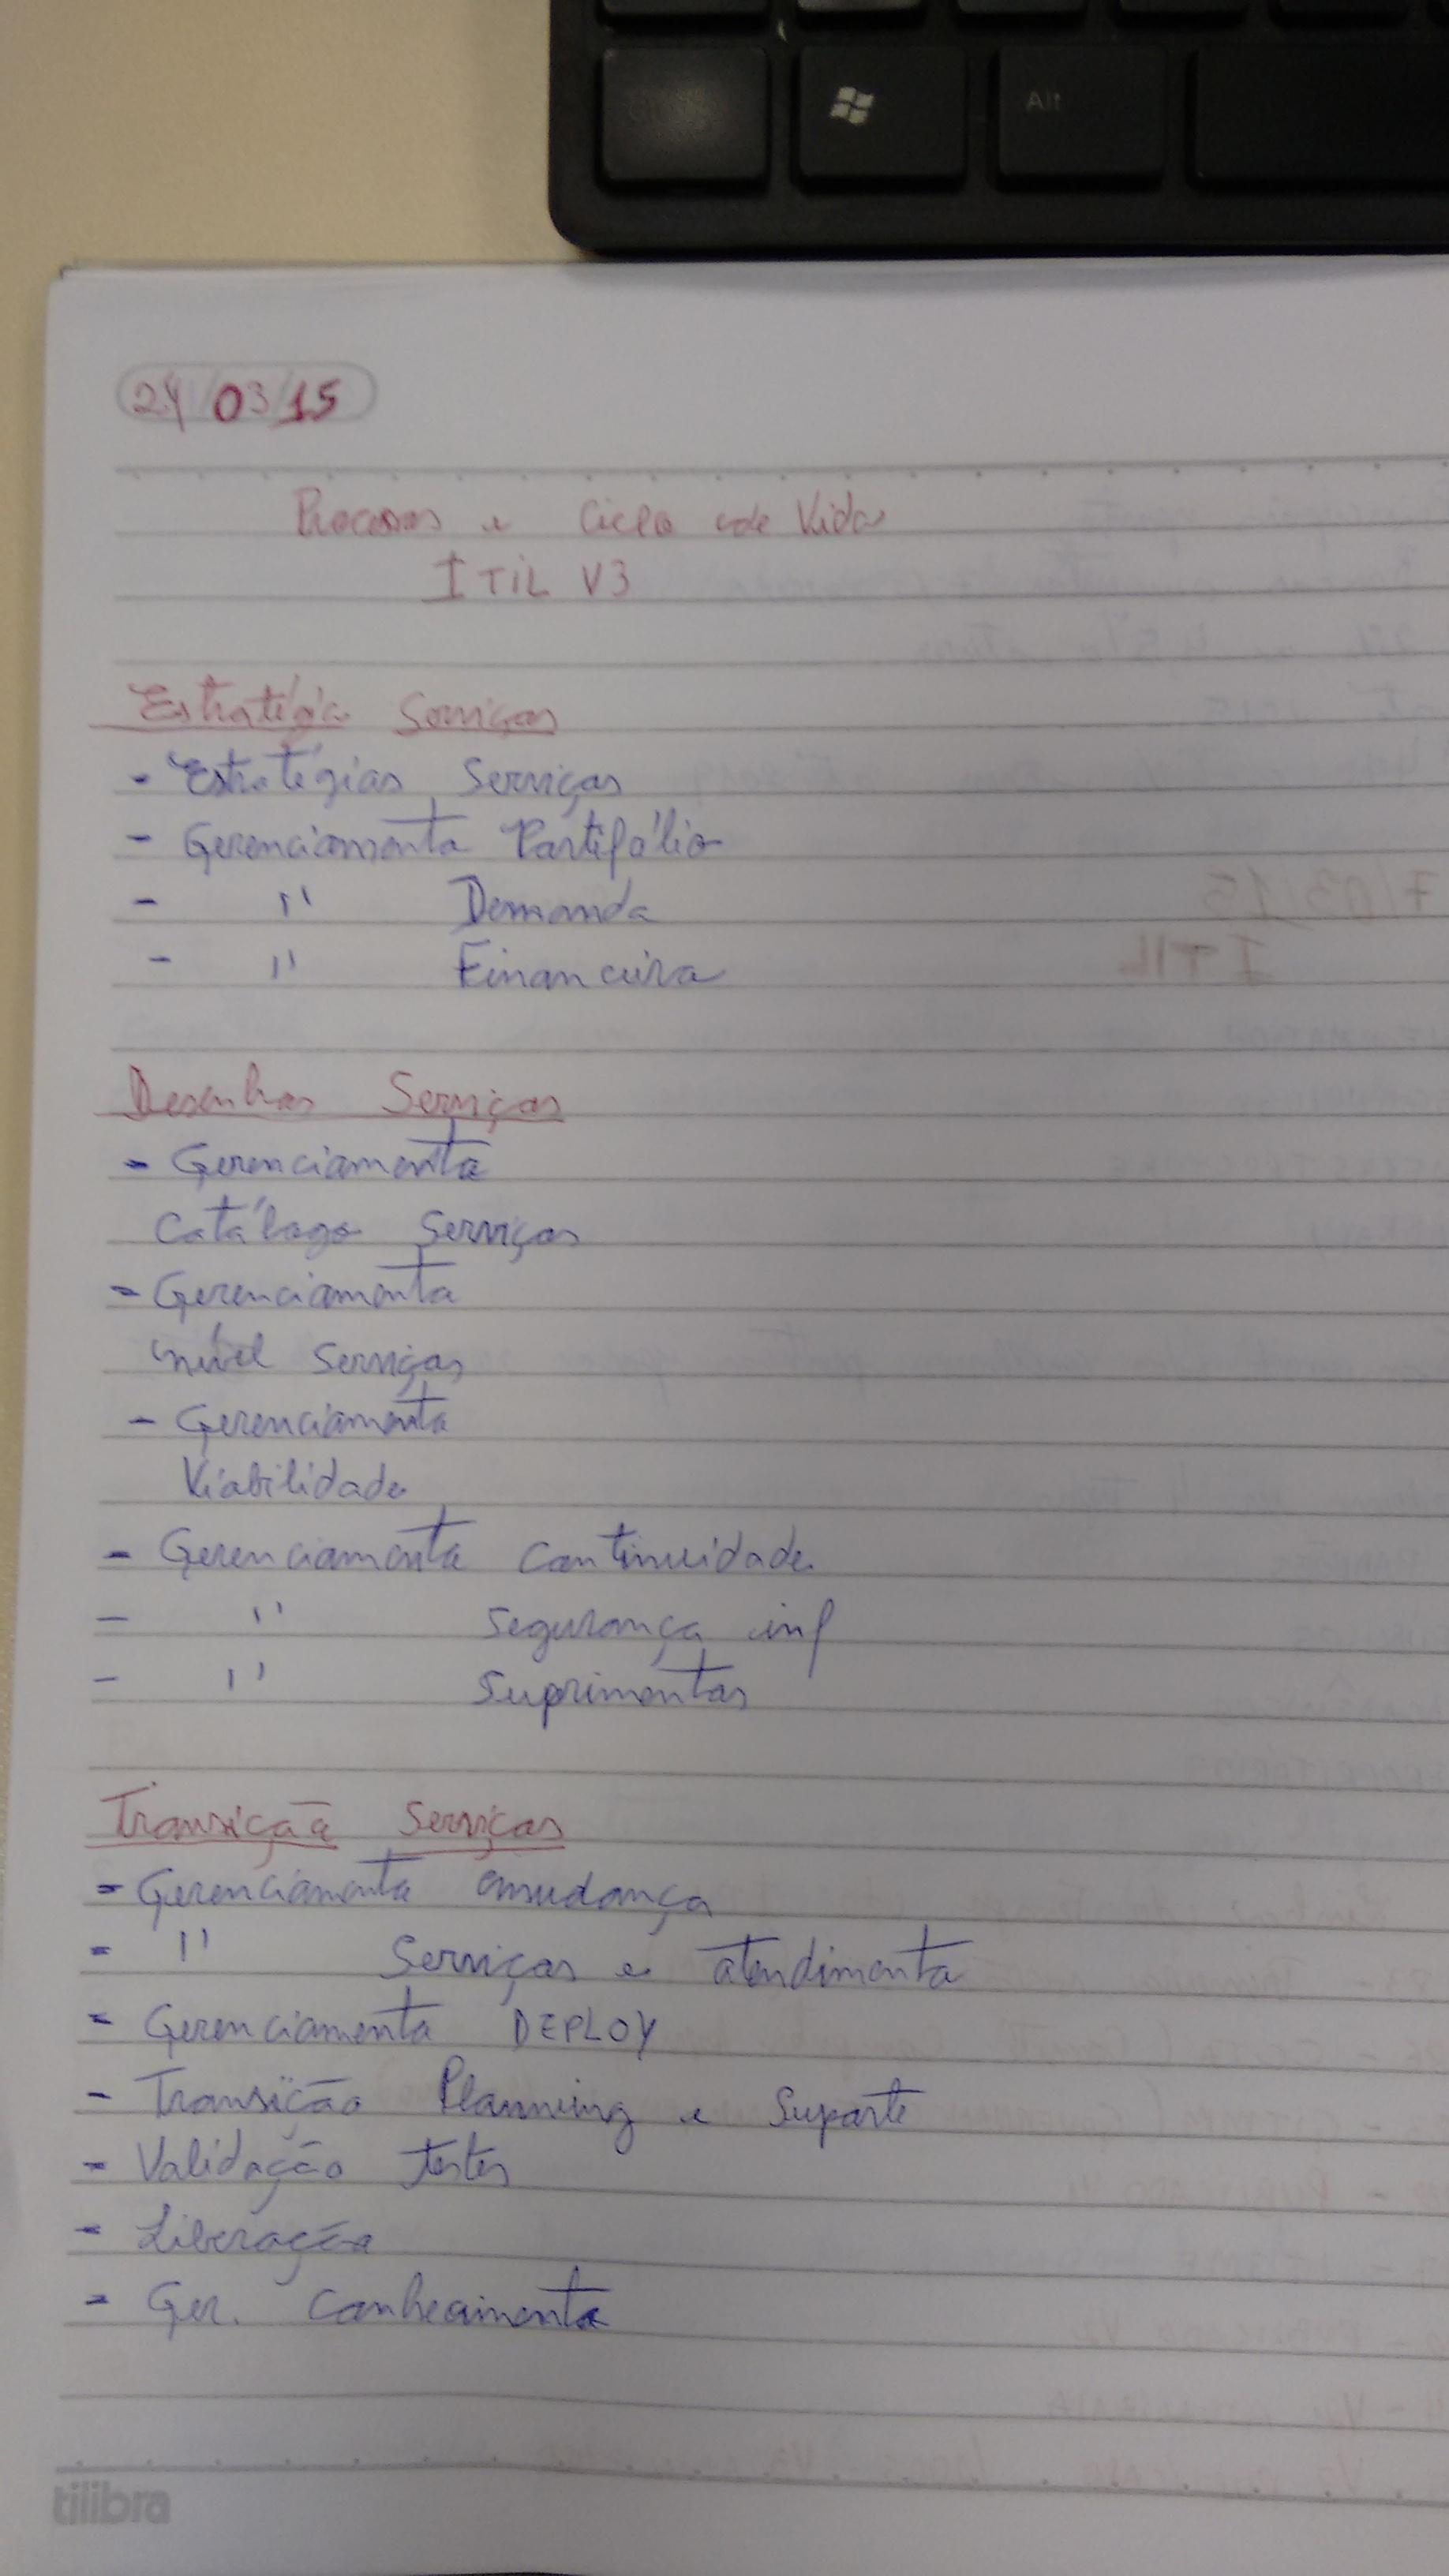 Alt
24/03/15
Processos e Ciclo de Vida
ITIL V3
Estratégia Serviços
- Estratégias Serviços
- Gerenciamento Portifólio
- '' Demanda
- '' Financeiro
Desenhos Serviços
- Gerenciamento
Catálogo Serviços
- Gerenciamento
nível Serviços
- Gerenciamento
Viabilidade
- Gerenciamento continuidade
- '' segurança inf
- '' suprimentos
Transição Serviços
- Gerenciamento mudança
- '' Serviços e atendimento
- Gerenciamento DEPLOY
- Transição Planning e Suporte
- Validação testes
- Liberação
- Ger. conhecimento
tilibra